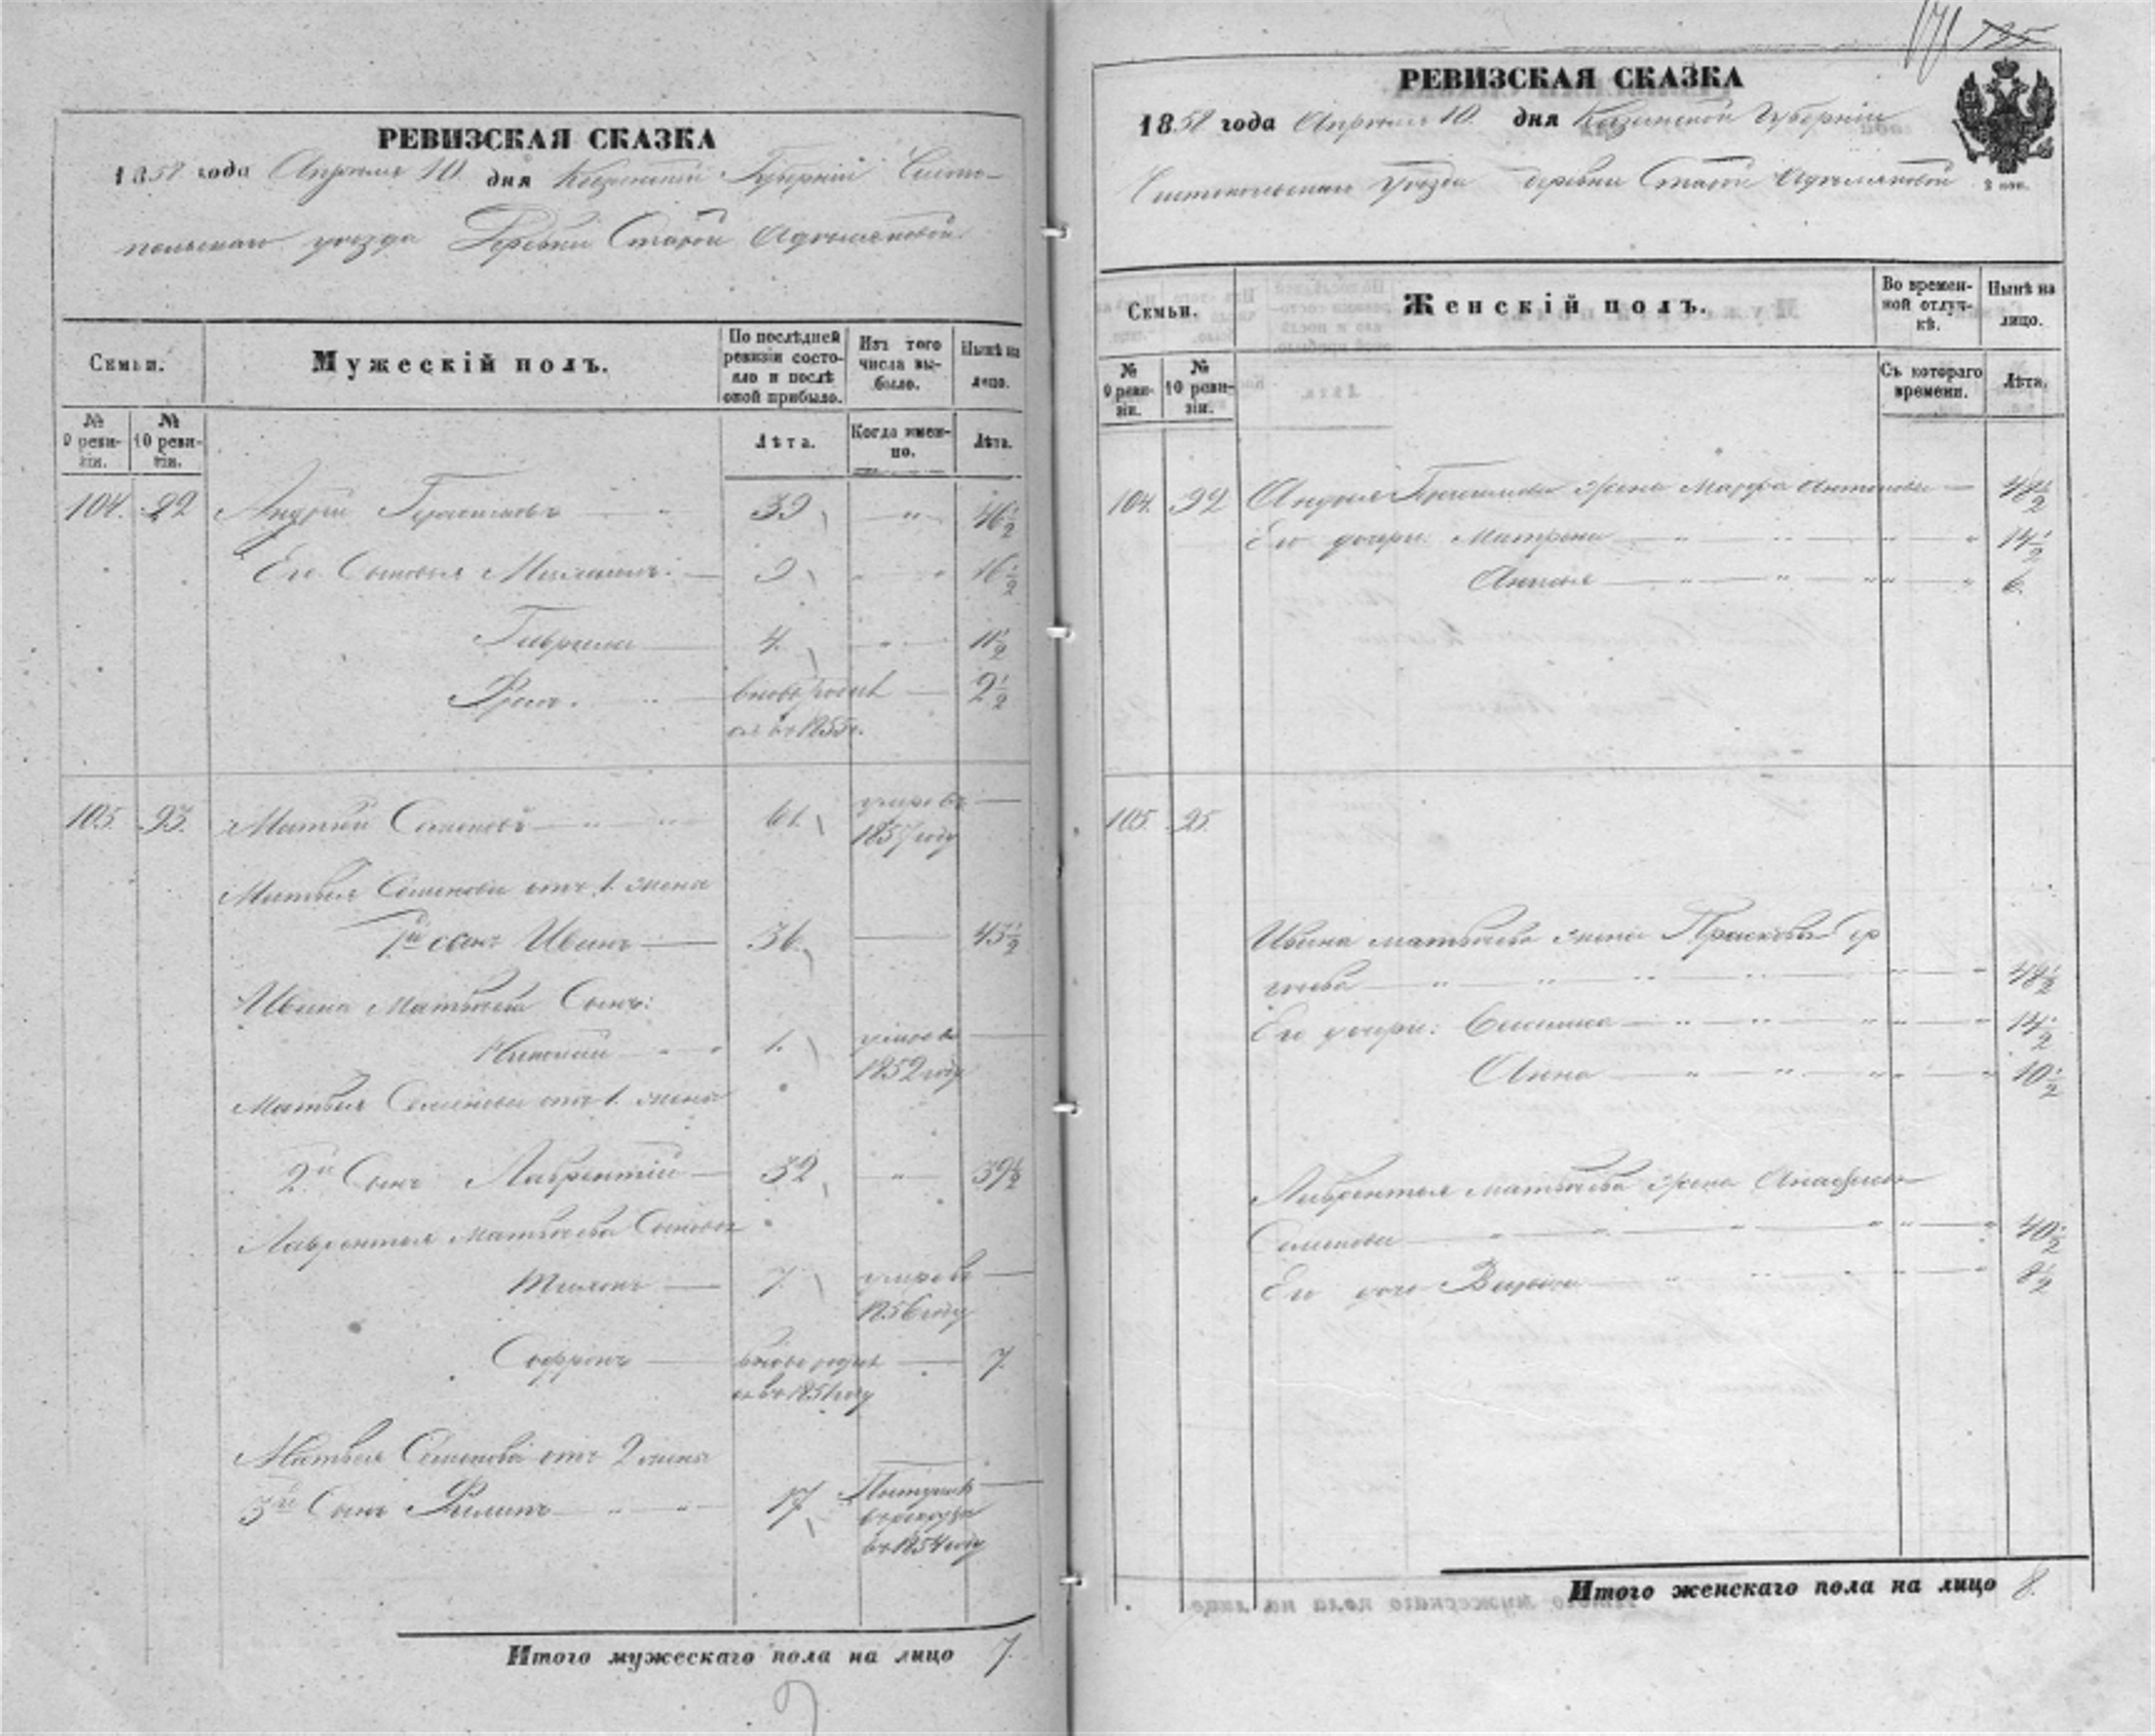 РЕВИЗСКАЯ СКАЗКА
1858 года Апреля 10 дня Казанской Губернии Чисто-
польскаго уезда Деревни Старой
Семьи.
Мужескій полъ.
По послѣдней ревизіи состояло и послѣ оной прибыло.
Изъ того числа выбыло.
Нынѣ на лицо.
№ 9 ревизіи.
№ 10 ревизіи.
Лѣта.
Когда именно.
Лѣта.
104. 92 Андрей Герасимовъ 39 46½
Его Сыновья Михаилъ 9 16½
Гаврила 4. 11½
вновь родил 2½
ся въ 1855 г.
105. 93. Матвей Семеновъ 61. умеръ въ
1857 году
Матвея Семенова отъ 1. жены
1й сынъ Иванъ 36. 43½
Ивана Матвеева Сынъ:
Николай 1. умеръ въ
1852 году
Матвея Семенова отъ 1. жены
2й Сынъ Лаврентий 32 39½
Лаврентья Матвеева Сыновья
Тихонъ 7. умеръ въ
1856 году
Софронъ вновь родил 7.
ся въ 1851 году
Матвея Семенова отъ 2 жены
3й Сынъ Филипъ 17. Поступил
в рекруты
въ 1854 году
Итого мужескаго пола на лицо 7.
171 175
РЕВИЗСКАЯ СКАЗКА
1858 года Апреля 10. дня Казанской Губернии
Чистопольскаго уезда деревни Старой
Семьи.
Женскій полъ.
Во временной отлучкѣ.
Нынѣ на лицо.
№ 9 ревизіи.
№ 10 ревизіи.
Съ котораго времени.
Лѣта.
104. 92 Андрея Герасимова жена Марфа Антонова 48½
Его дочери: Матрена 14½
6.
105. 93.
Ивана Матвеева жена Прасковья
48½
Его дочери: Василиса 14½
Анна 10½
Лаврентья Матвеева жена
Семенова 40½
Его дочь 8½
Итого женскаго пола на лицо 8.